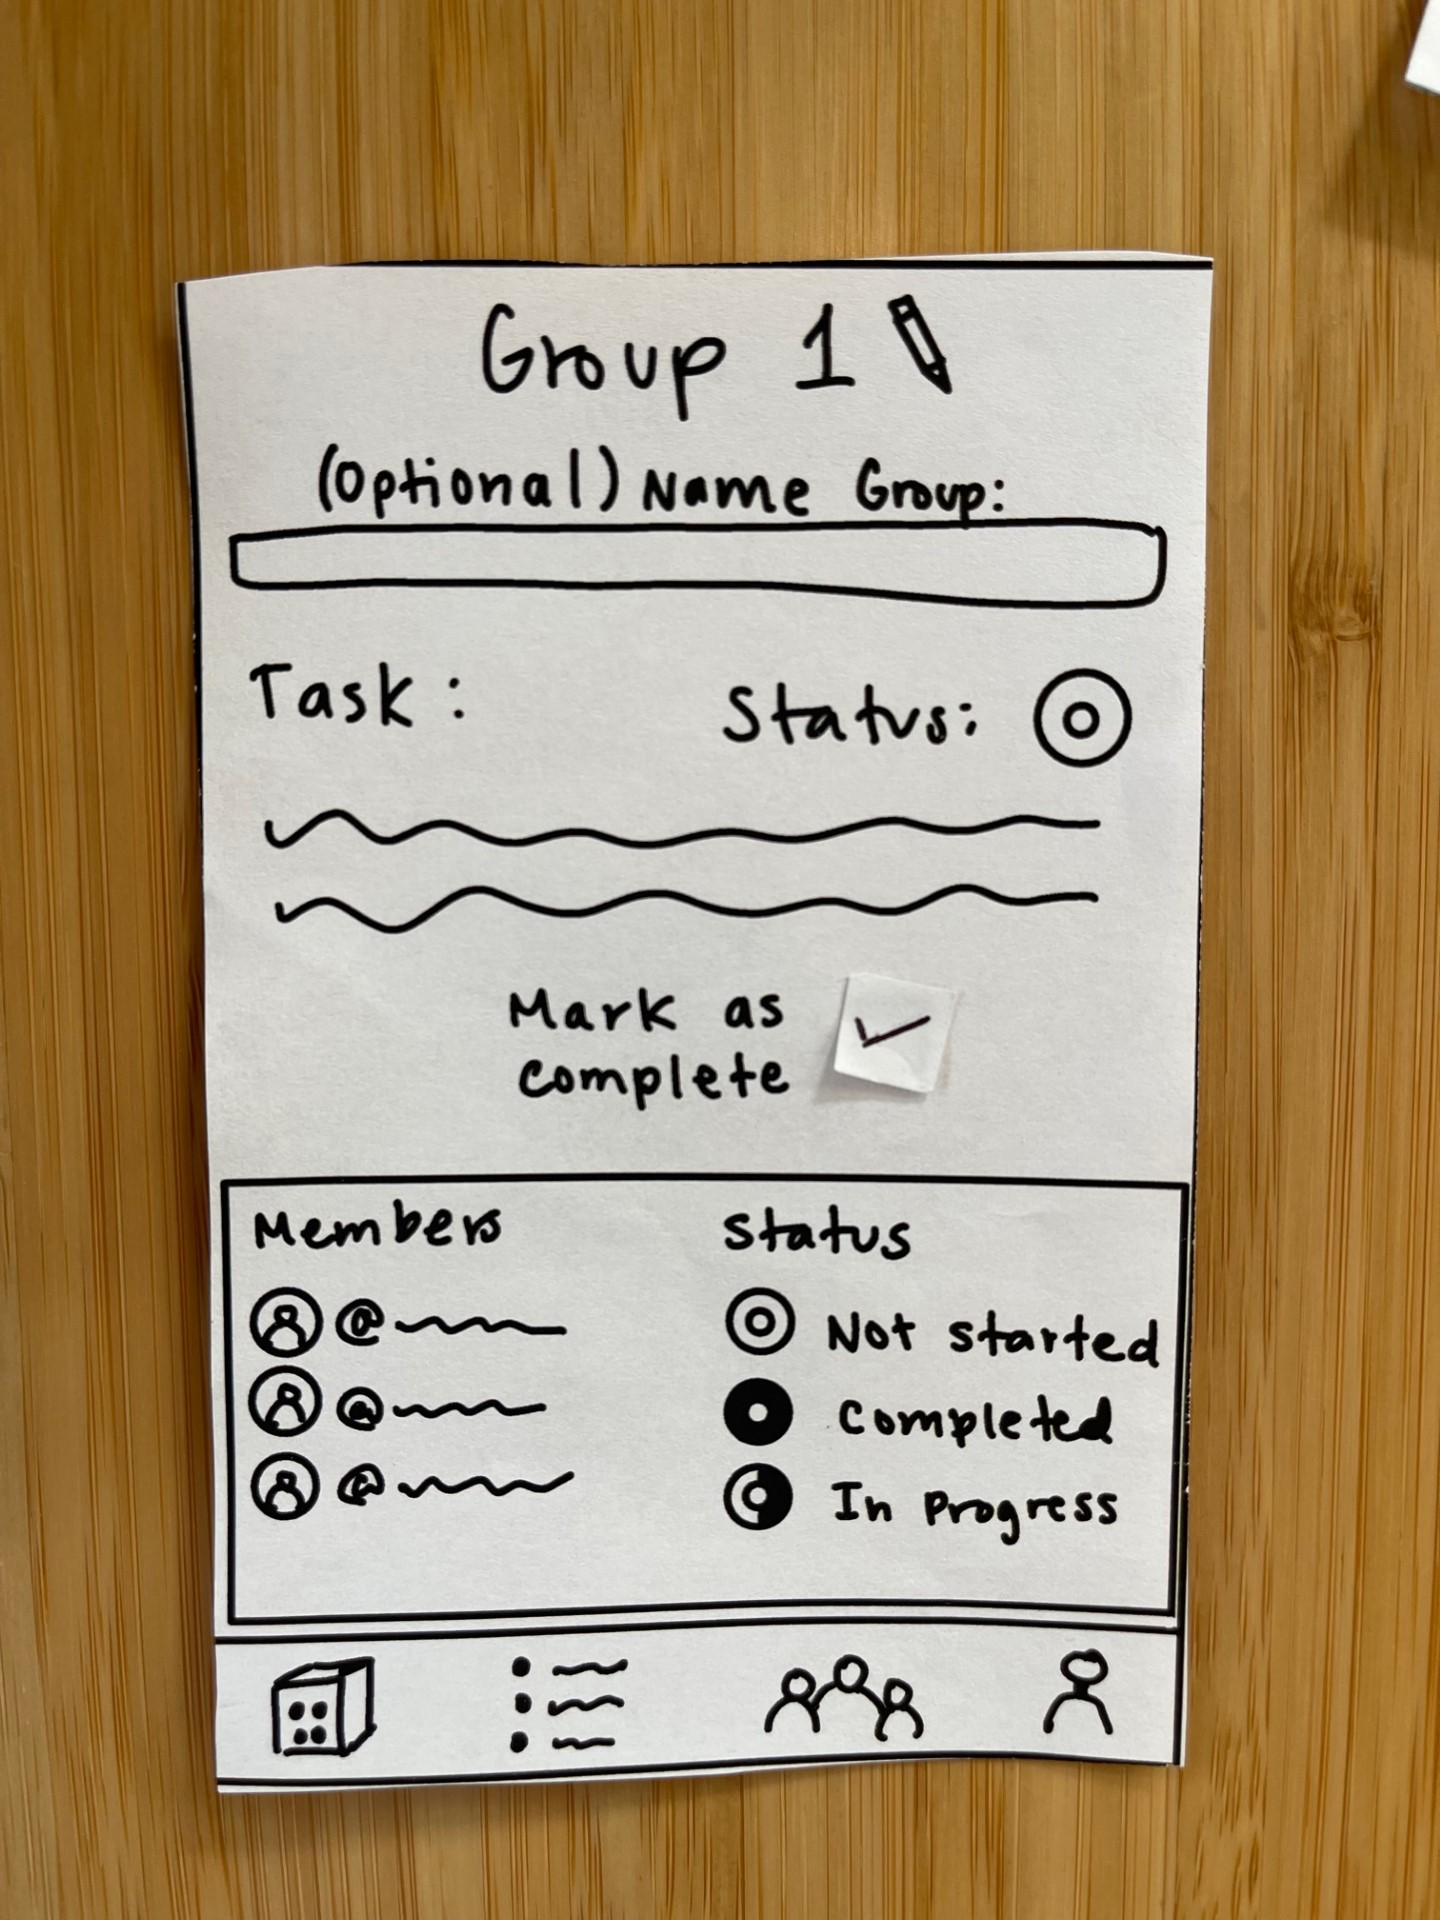 Group 1
(Optional) Name Group:
Task: Status:
Mark as
complete
Members Status
@ Not started
@ Completed
@ In Progress